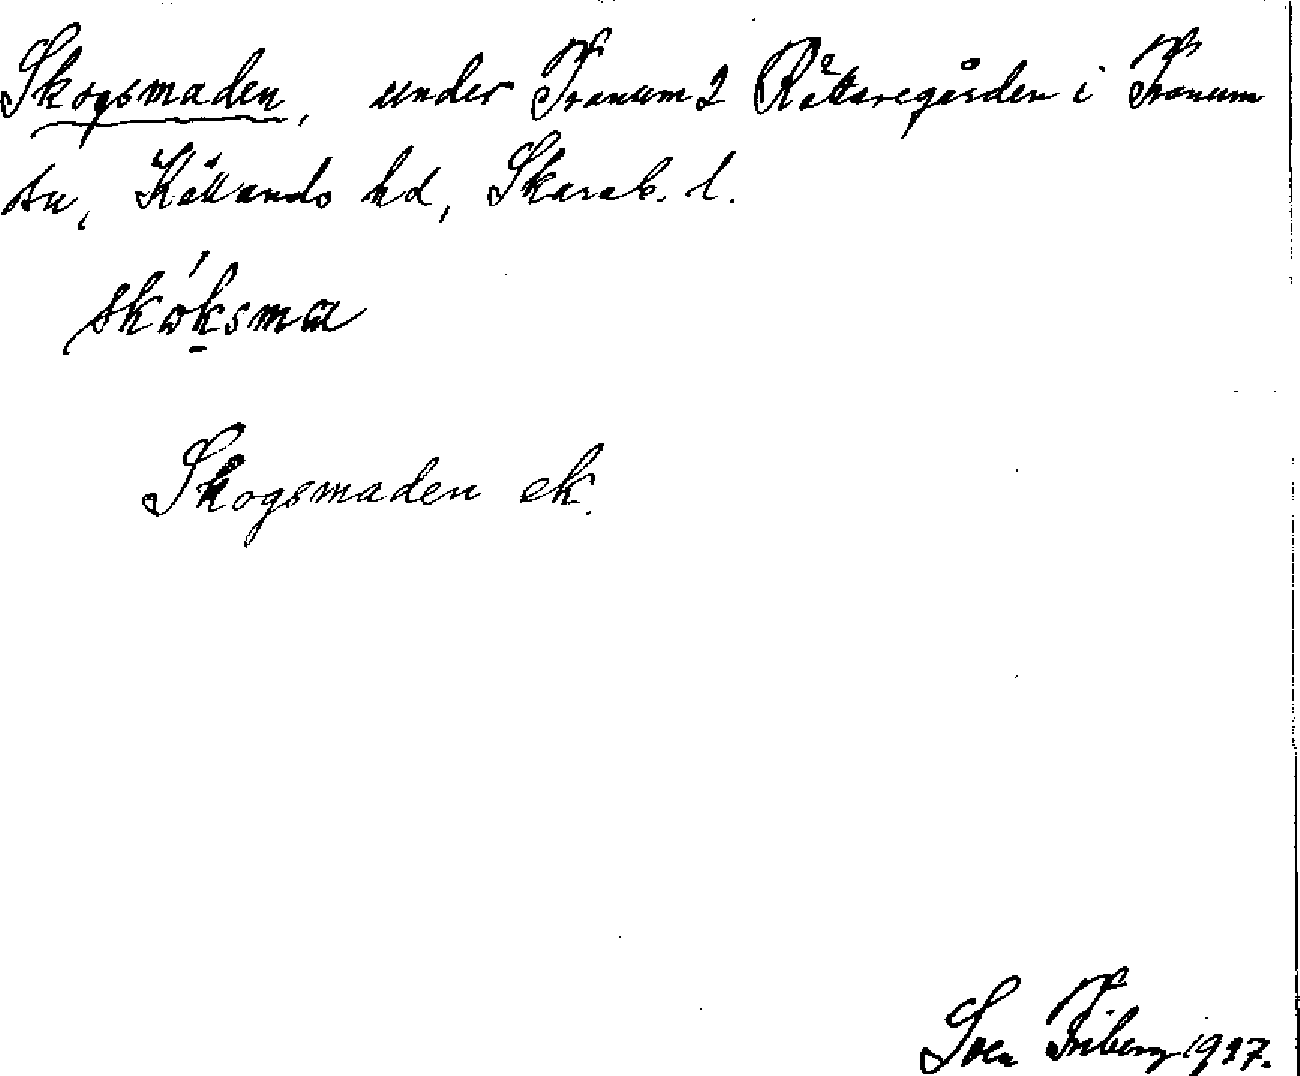 Skogsmaden, under Tranum 2 Rättaregården i Tranum
sn, Kållands hd, Skarab. l.
skóksma
Skogsmaden ek.
Sven Friberg 1937.